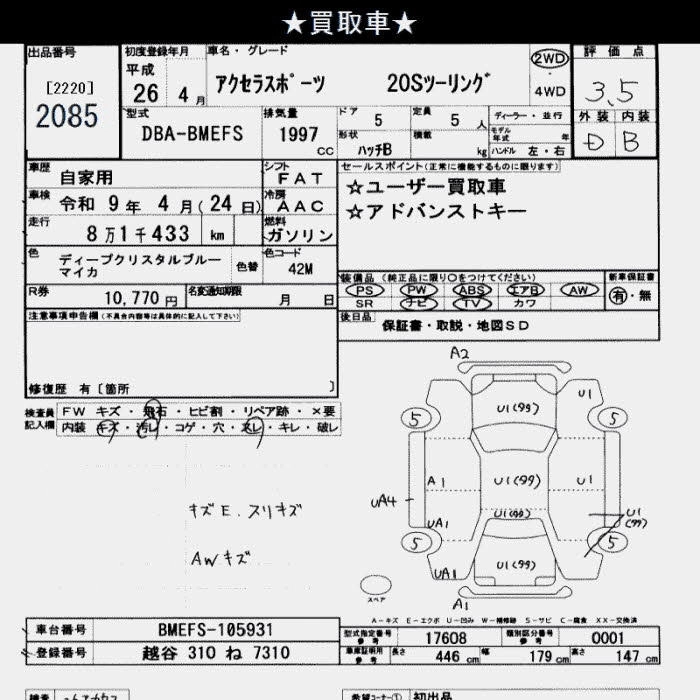 ★買取車★
出品番号
[2220]
2085
初度登録年月
平成
26 4 月
車名・グレード
アクセラスポーツ 20Sツーリング
2WD
・
4WD
評価点
3.5
外装 内装
D B
型式
DBA-BMEFS
排気量
1997 CC
ドア 5
定員 5 人
形状 ハッチB
積載 kg
ディーラー・並行
モデル年式 年
ハンドル 左・右
車歴 自家用
シフト FAT
車検 令和 9 年 4 月(24 日)
冷房 AAC
走行 8万1千433 km
燃料 ガソリン
色 ディープクリスタルブルーマイカ
色替
色コード 42M
R券 10,770 円
名変通知期限 月 日
セールスポイント(正常に機能するものに限ります)
☆ユーザー買取車
☆アドバンストキー
装備品(純正品に限り〇をつけてください)
PS PW ABS エアB AW
SR ナビ TV カワ
新車保証書
有・無
後日品 保証書・取説・地図SD
注意事項申告欄(不具合内容等は具体的に記入して下さい)
修復歴 有〔箇所 〕
検査員記入欄
FW キズ・飛石・ヒビ割・リペア跡・×要
内装 キズ・汚レ・コゲ・穴・スレ・キレ・破レ
キズE.スリキズ
AWキズ
A2
U1(99)
U1
5
5
A1
U1(99)
U1
UA4
U1(99)
UA1
U1
(99)
5
5
U1(99)
UA1
A1
スペア
A-キズ E-エクボ U-凹み W-補修跡 S-サビ C-腐食 XX-交換済
車台番号 BMEFS-105931
登録番号 越谷 310 ね 7310
型式指定番号 参考 17608
類別区分番号 参考 0001
車庫証明用 参考 長さ 446 cm 幅 179 cm 高さ 147 cm
検査
希望コーナー① 初出品